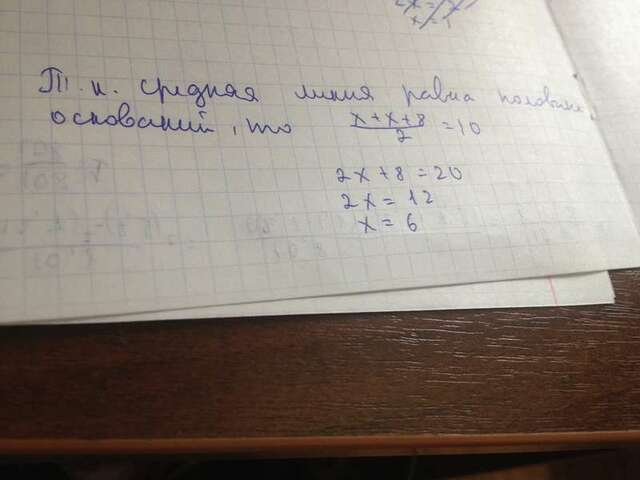 2x =
x = 1
Т. к. средняя линия равна половине
оснований, то x + x + 8 / 2 = 10
2x + 8 = 20
2x = 12
x = 6